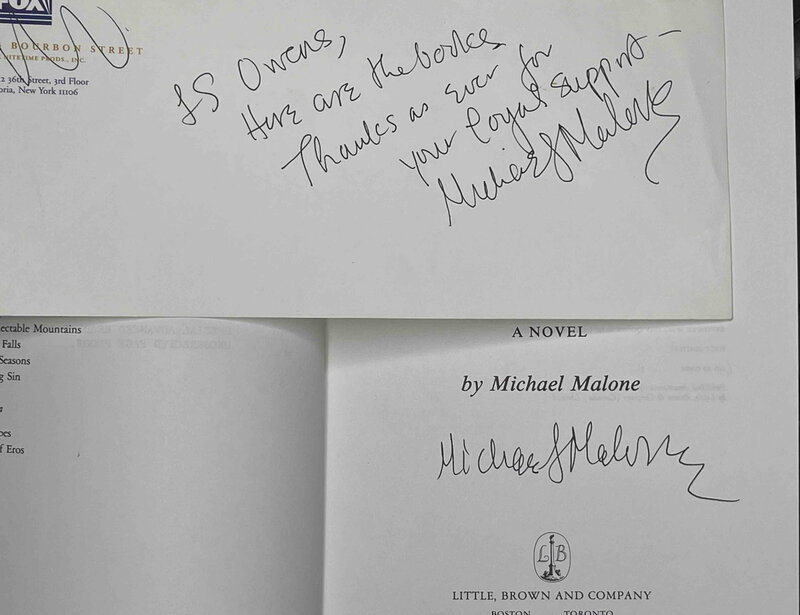 FOX
BOURBON STREET
NITETIME PRODS., INC.
36th Street, 3rd Floor
New York 11106
JS Owens,
Here are the books
Thanks as ever for
your loyal support—
Michael Malone
ectable Mountains
Falls
Seasons
g Sin
of Eros
A NOVEL
by Michael Malone
Michael Malone
LB
LITTLE, BROWN AND COMPANY
BOSTON TORONTO